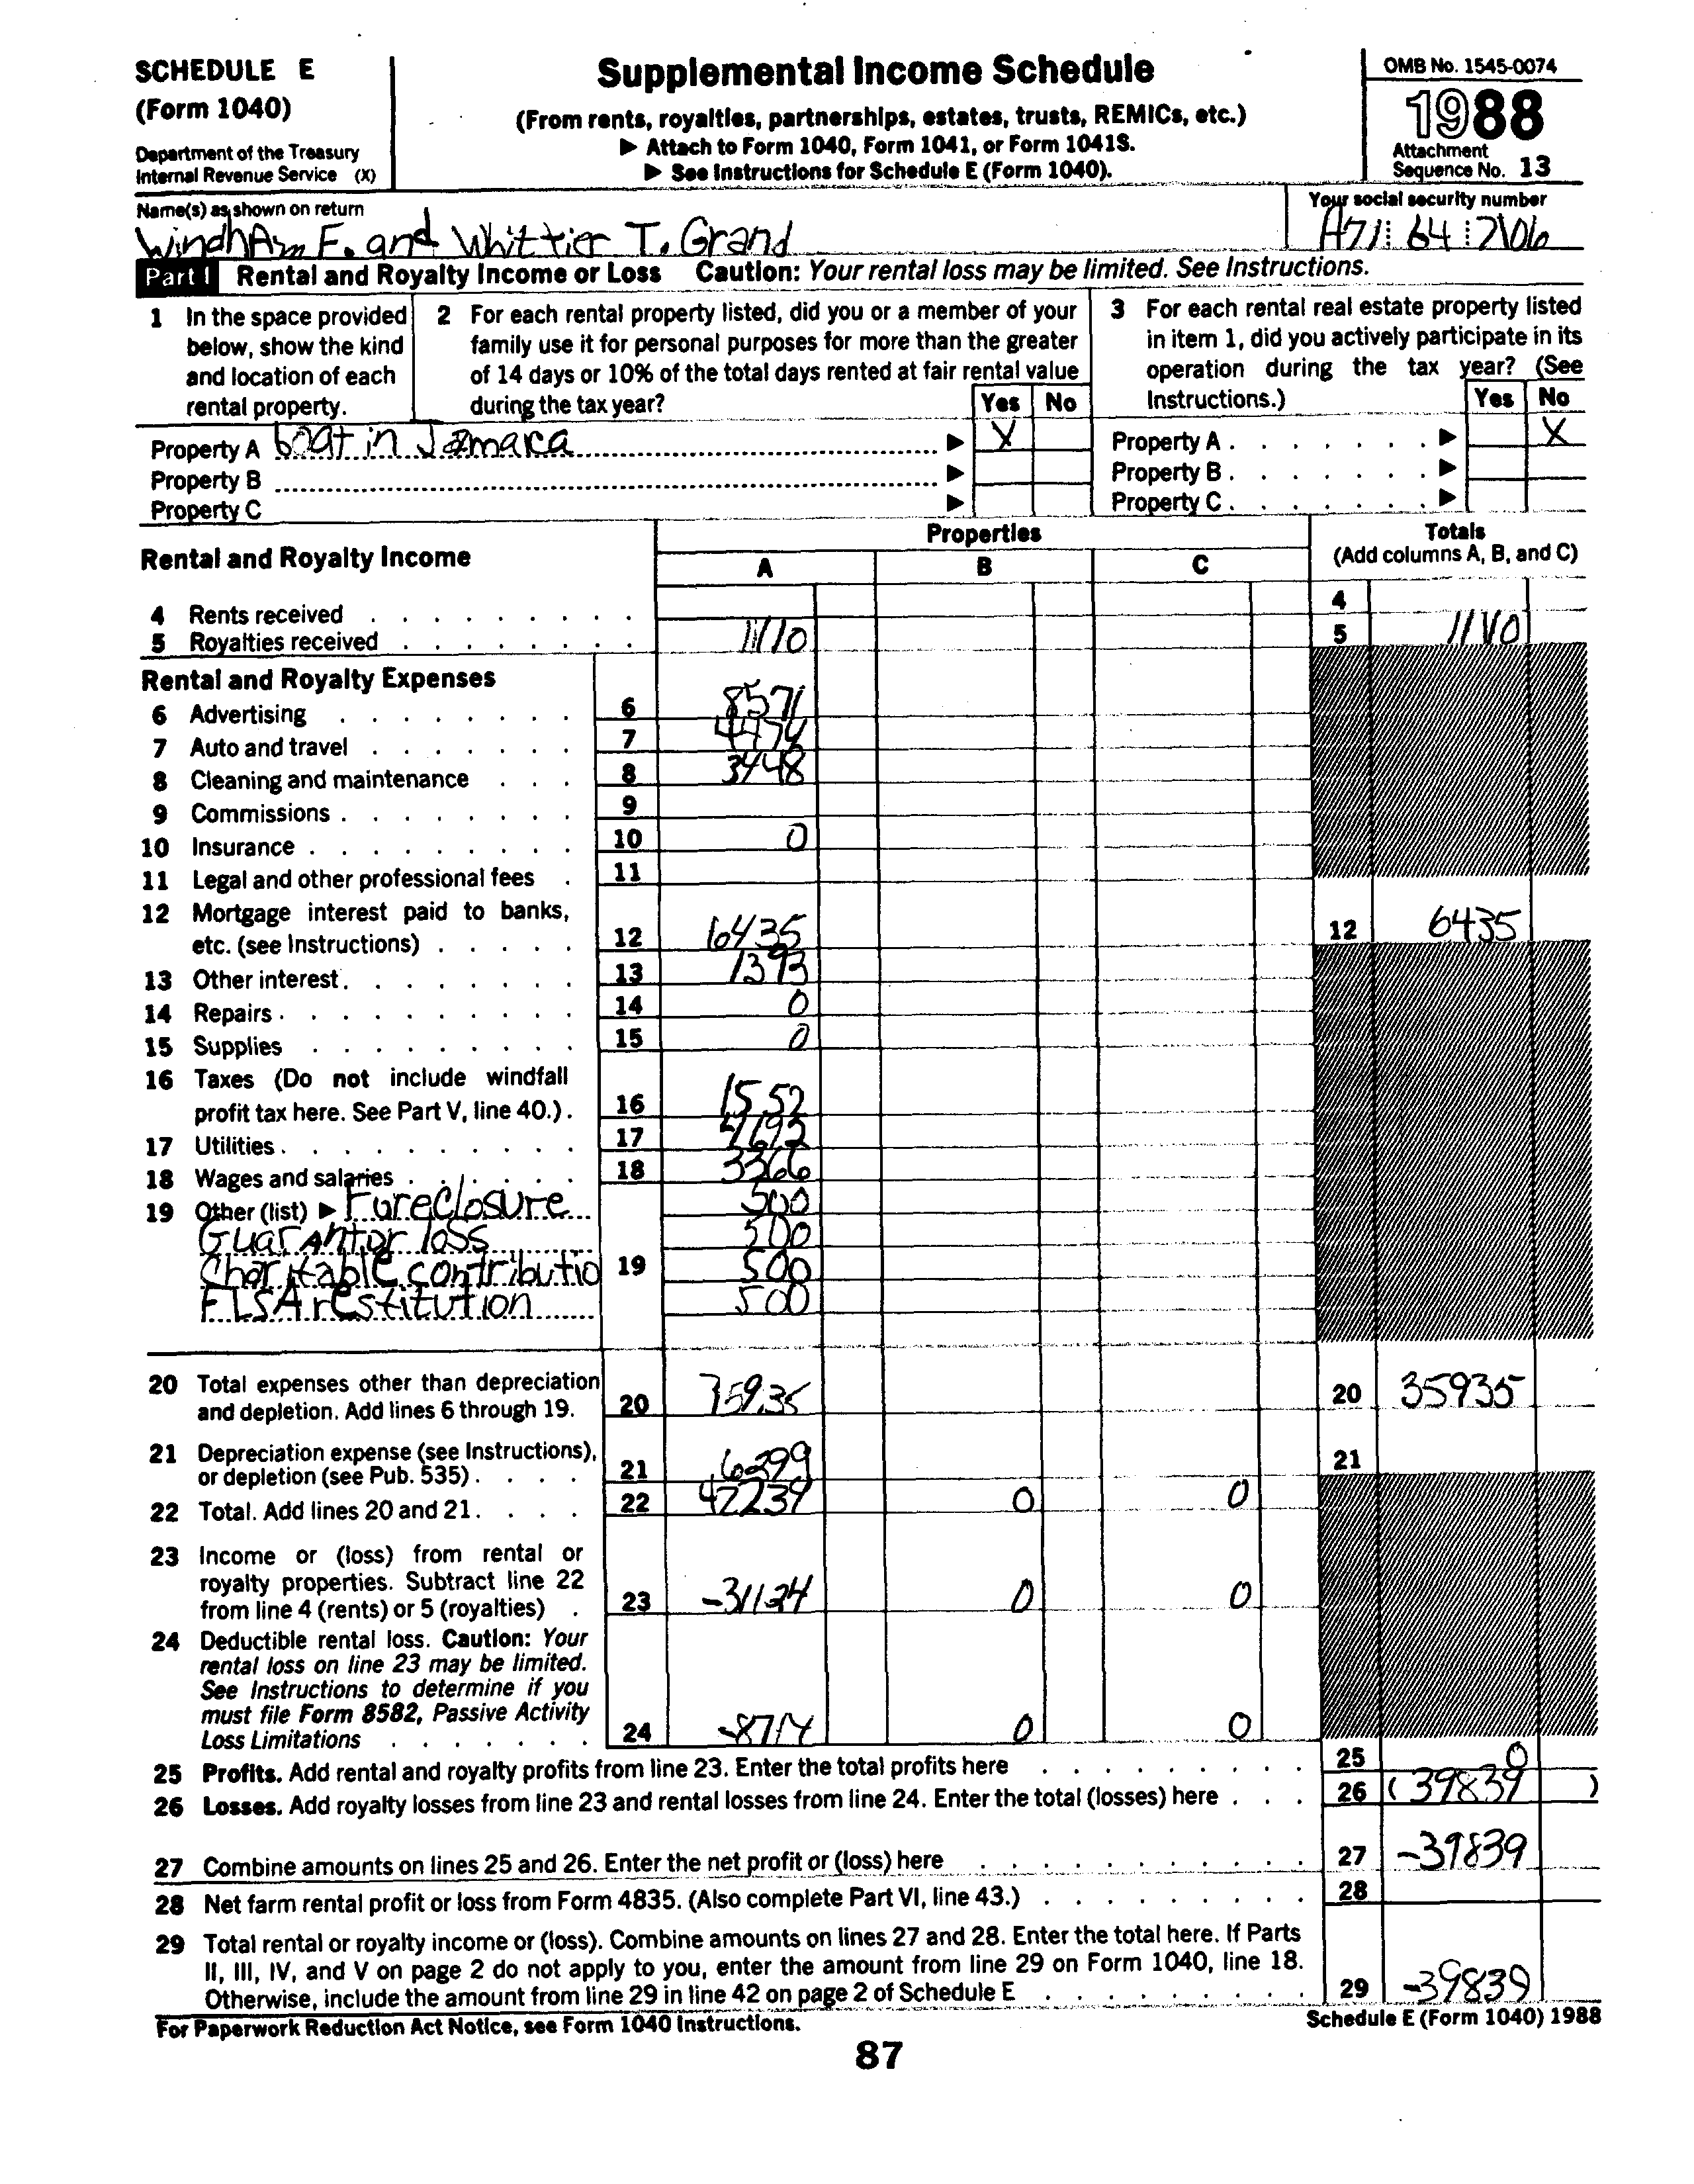 SCHEDULE E
(Form 1040)
Department of the Treasury
Internal Revenue Service (X)
Supplemental Income Schedule
(From rents, royalties, partnerships, estates, trusts, REMICs, etc.)
▶ Attach to Form 1040, Form 1041, or Form 1041S.
▶ See Instructions for Schedule E (Form 1040).
OMB No. 1545-0074
1988
Attachment
Sequence No. 13
Name(s) as shown on return
Windham F. and Whittier T. Grand
Your social security number
A71 64 2106
Part I Rental and Royalty Income or Loss Caution: Your rental loss may be limited. See Instructions.
1 In the space provided below, show the kind and location of each rental property.
2 For each rental property listed, did you or a member of your family use it for personal purposes for more than the greater of 14 days or 10% of the total days rented at fair rental value during the tax year?
Yes No
3 For each rental real estate property listed in item 1, did you actively participate in its operation during the tax year? (See Instructions.)
Yes No
Property A boat in Jamaca ▶ X
Property A ▶ X
Property B ▶
Property B ▶
Property C ▶
Property C ▶
Rental and Royalty Income
Properties
A B C
Totals
(Add columns A, B, and C)
4 Rents received 4
5 Royalties received 1110 5 1110
Rental and Royalty Expenses
6 Advertising 6 8571
7 Auto and travel 7 4474
8 Cleaning and maintenance 8 3448
9 Commissions 9
10 Insurance 10 0
11 Legal and other professional fees 11
12 Mortgage interest paid to banks,
etc. (see Instructions) 12 6435 12 6435
13 Other interest 13 1393
14 Repairs 14 0
15 Supplies 15 0
16 Taxes (Do not include windfall
profit tax here. See Part V, line 40.) 16 1552
17 Utilities 17
18 Wages and salaries 18 3366
19 Other (list) ▶ Foreclosure 500
Guarantor loss 500
Charitable contributio 19 500
FLSA restitution 500
20 Total expenses other than depreciation
and depletion. Add lines 6 through 19. 20 35935 20 35935
21 Depreciation expense (see Instructions),
or depletion (see Pub. 535) 21 6299 21
22 Total. Add lines 20 and 21 22 42239 0 0
23 Income or (loss) from rental or
royalty properties. Subtract line 22
from line 4 (rents) or 5 (royalties) 23 -31124 0 0
24 Deductible rental loss. Caution: Your
rental loss on line 23 may be limited.
See Instructions to determine if you
must file Form 8582, Passive Activity
Loss Limitations 24 -8714 0 0
25 Profits. Add rental and royalty profits from line 23. Enter the total profits here 25 0
26 Losses. Add royalty losses from line 23 and rental losses from line 24. Enter the total (losses) here 26 (39839)
27 Combine amounts on lines 25 and 26. Enter the net profit or (loss) here 27 -39839
28 Net farm rental profit or loss from Form 4835. (Also complete Part VI, line 43.) 28
29 Total rental or royalty income or (loss). Combine amounts on lines 27 and 28. Enter the total here. If Parts
II, III, IV, and V on page 2 do not apply to you, enter the amount from line 29 on Form 1040, line 18.
Otherwise, include the amount from line 29 in line 42 on page 2 of Schedule E 29 -39839
For Paperwork Reduction Act Notice, see Form 1040 Instructions.
Schedule E (Form 1040) 1988
87